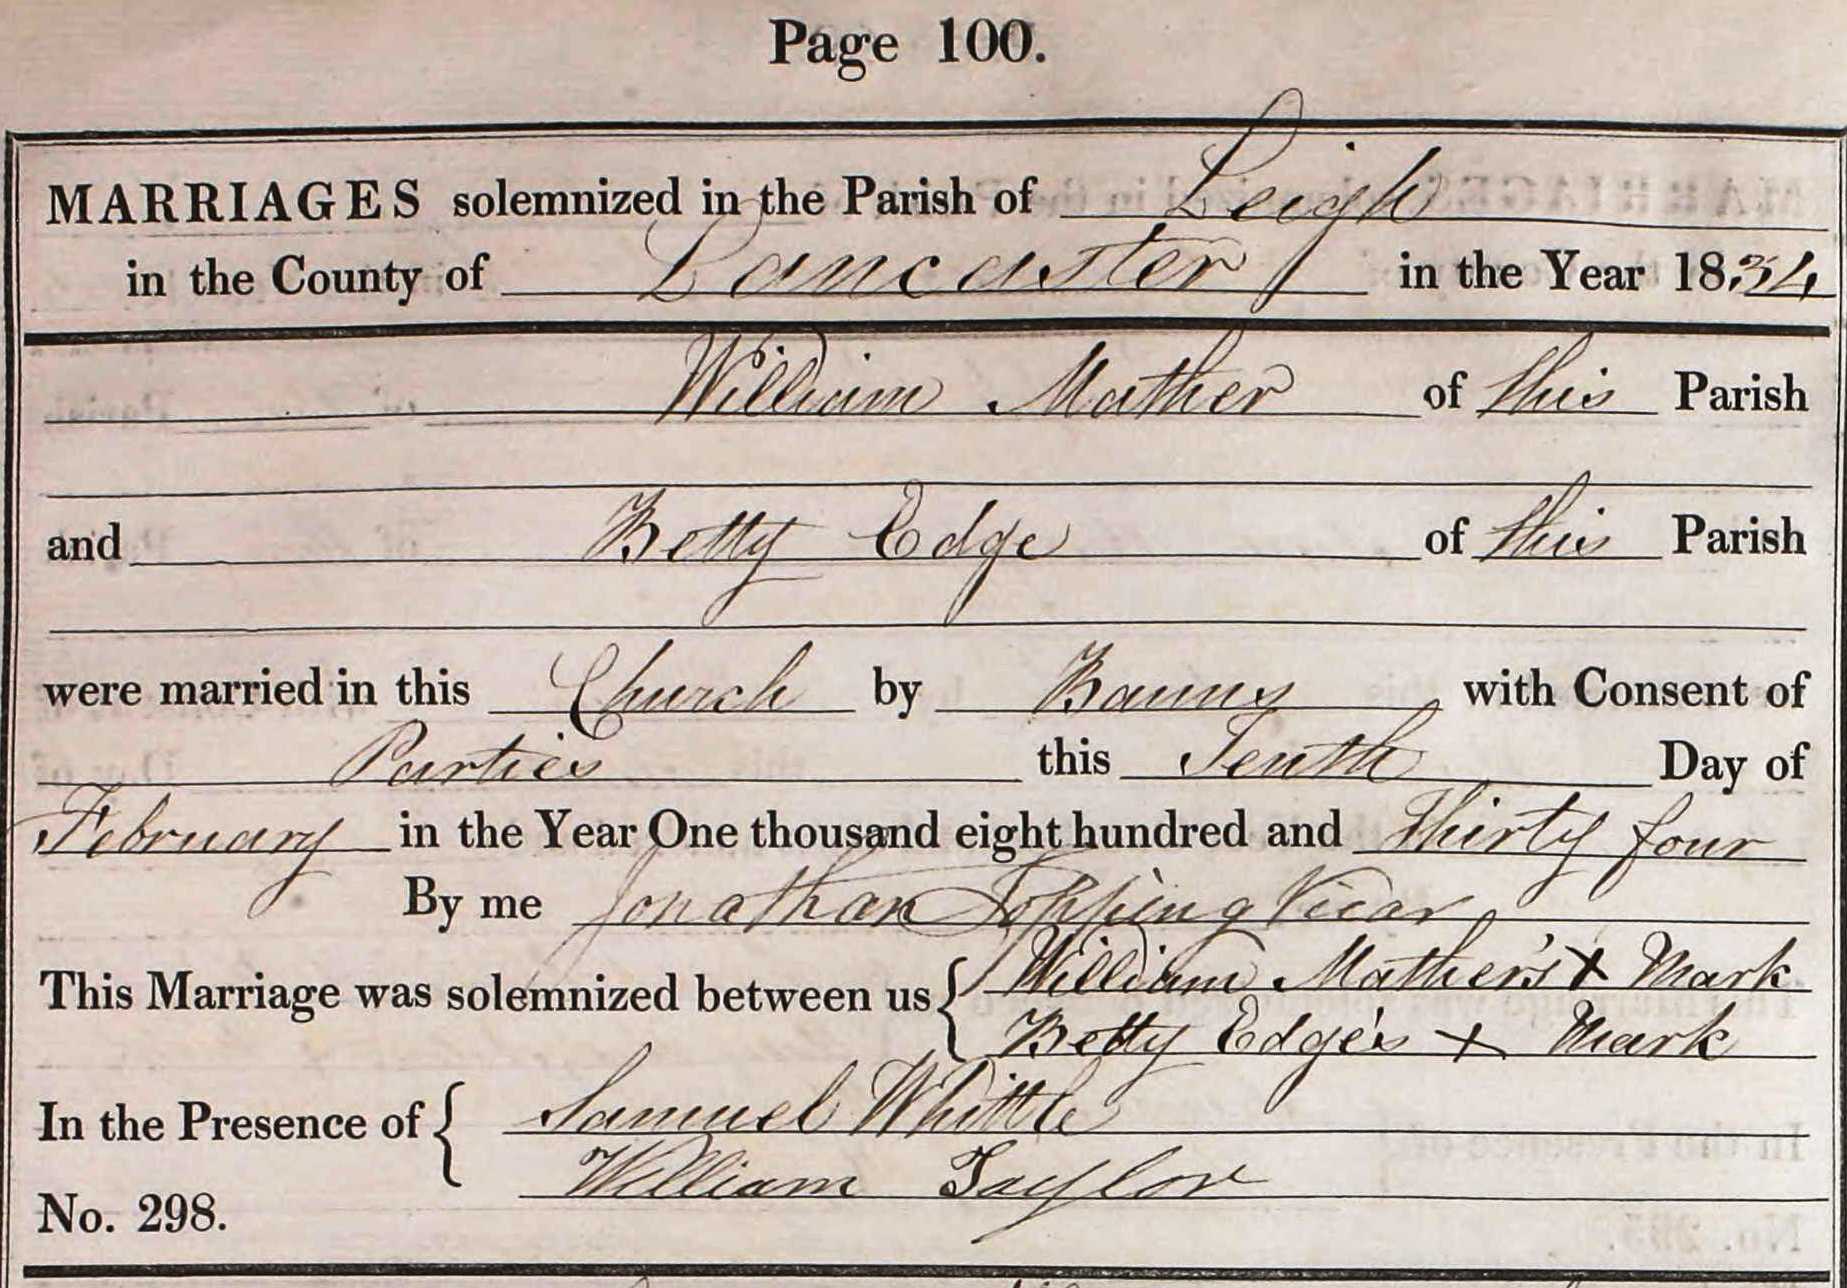 Page 100.
MARRIAGES solemnized in the Parish of Leigh
in the County of Lancaster in the Year 1834
William Mather of this Parish
and Betty Edge of this Parish
were married in this Church by Banns with Consent of
Parties this Tenth Day of
February in the Year One thousand eight hundred and Thirty four
By me Jonathan Topping Vicar
This Marriage was solemnized between us { William Mather's X Mark
Betty Edge's X Mark
In the Presence of { Samuel Whittle
William Taylor
No. 298.